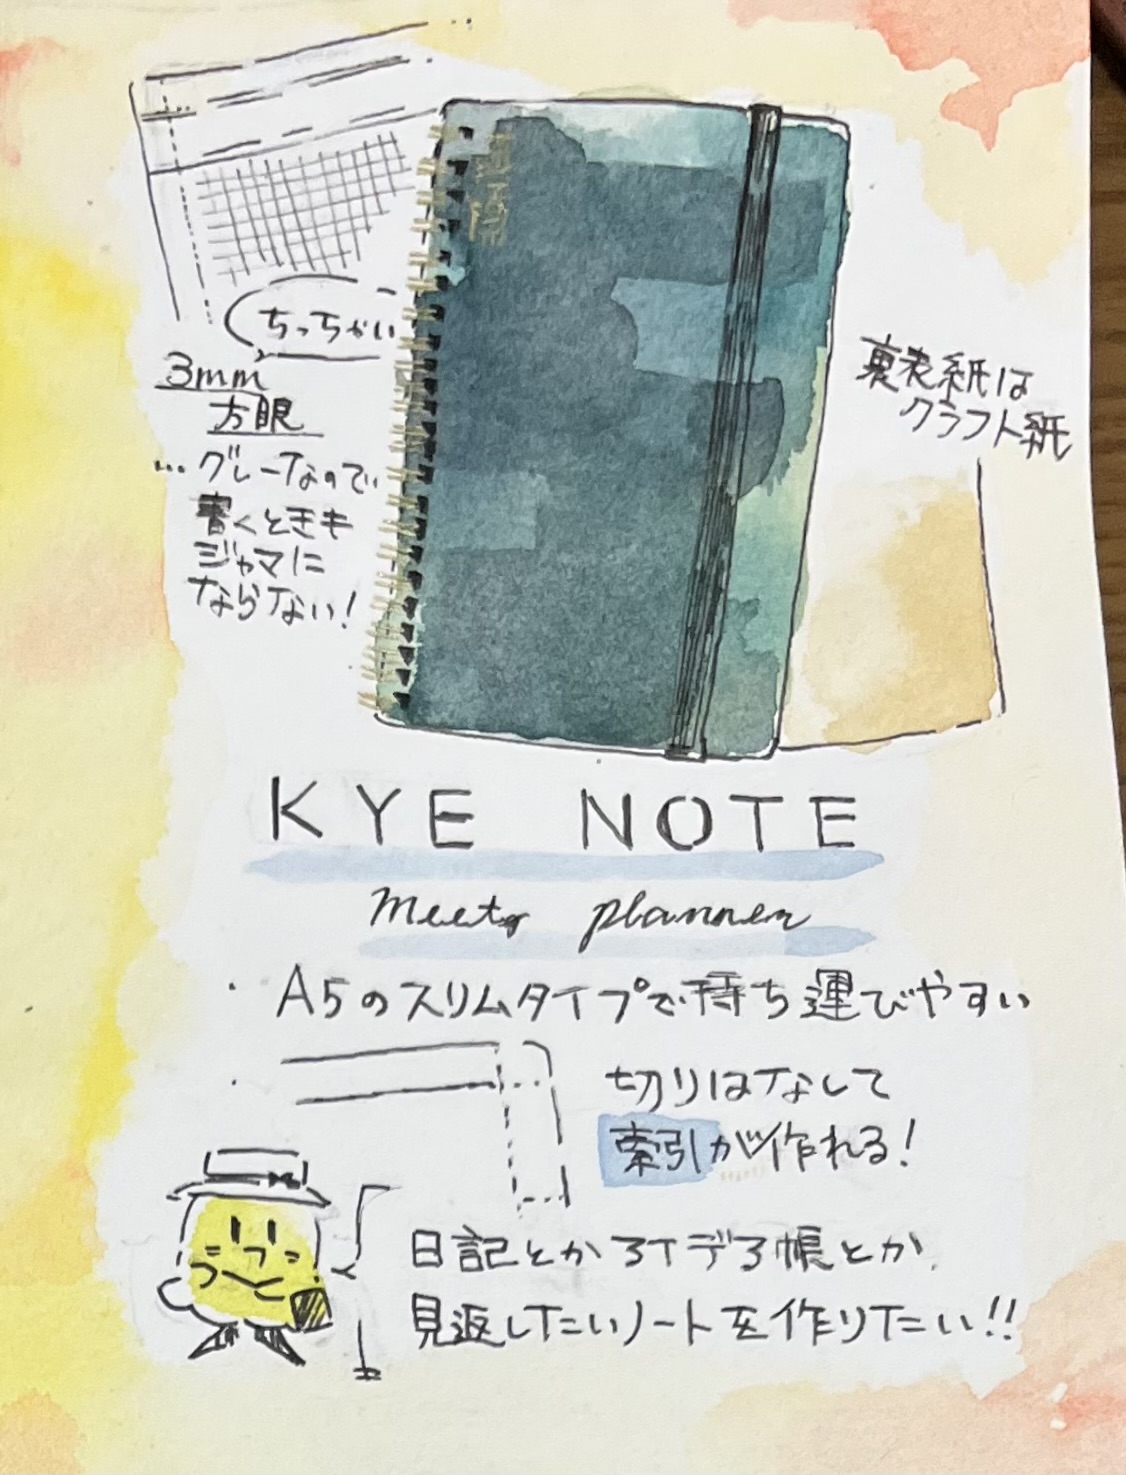 ちっちゃい
3mm
方眼
…グレーなので
書くときも
ジャマに
ならない!
裏表紙は
クラフト紙
KYE NOTE
Meets planner
・A5のスリムタイプで持ち運びやすい
・切りはなして
索引が作れる!
日記とかアイデア帳とか
見返したいノートを作りたい!!